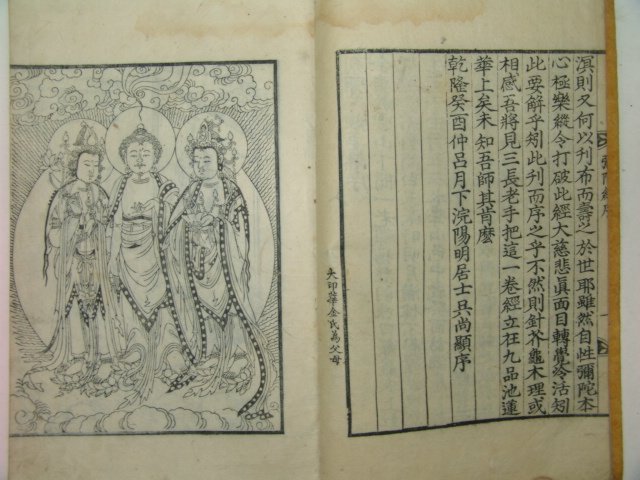 溟則又何以刋布而壽之於世耶雖然自性彌陀本
心極樂縱令打破此經大慈悲眞面目轉覺冷活矧
此要解乎矧此刋而序之乎不然則針芥龜木理或
相感吾將見三長老手把這一卷經立在九品池蓮
華上矣未知吾師其肯麽
乾隆癸酉仲呂月下浣陽明居士具尚顯序
彌陀經序
大印華金氏為父母